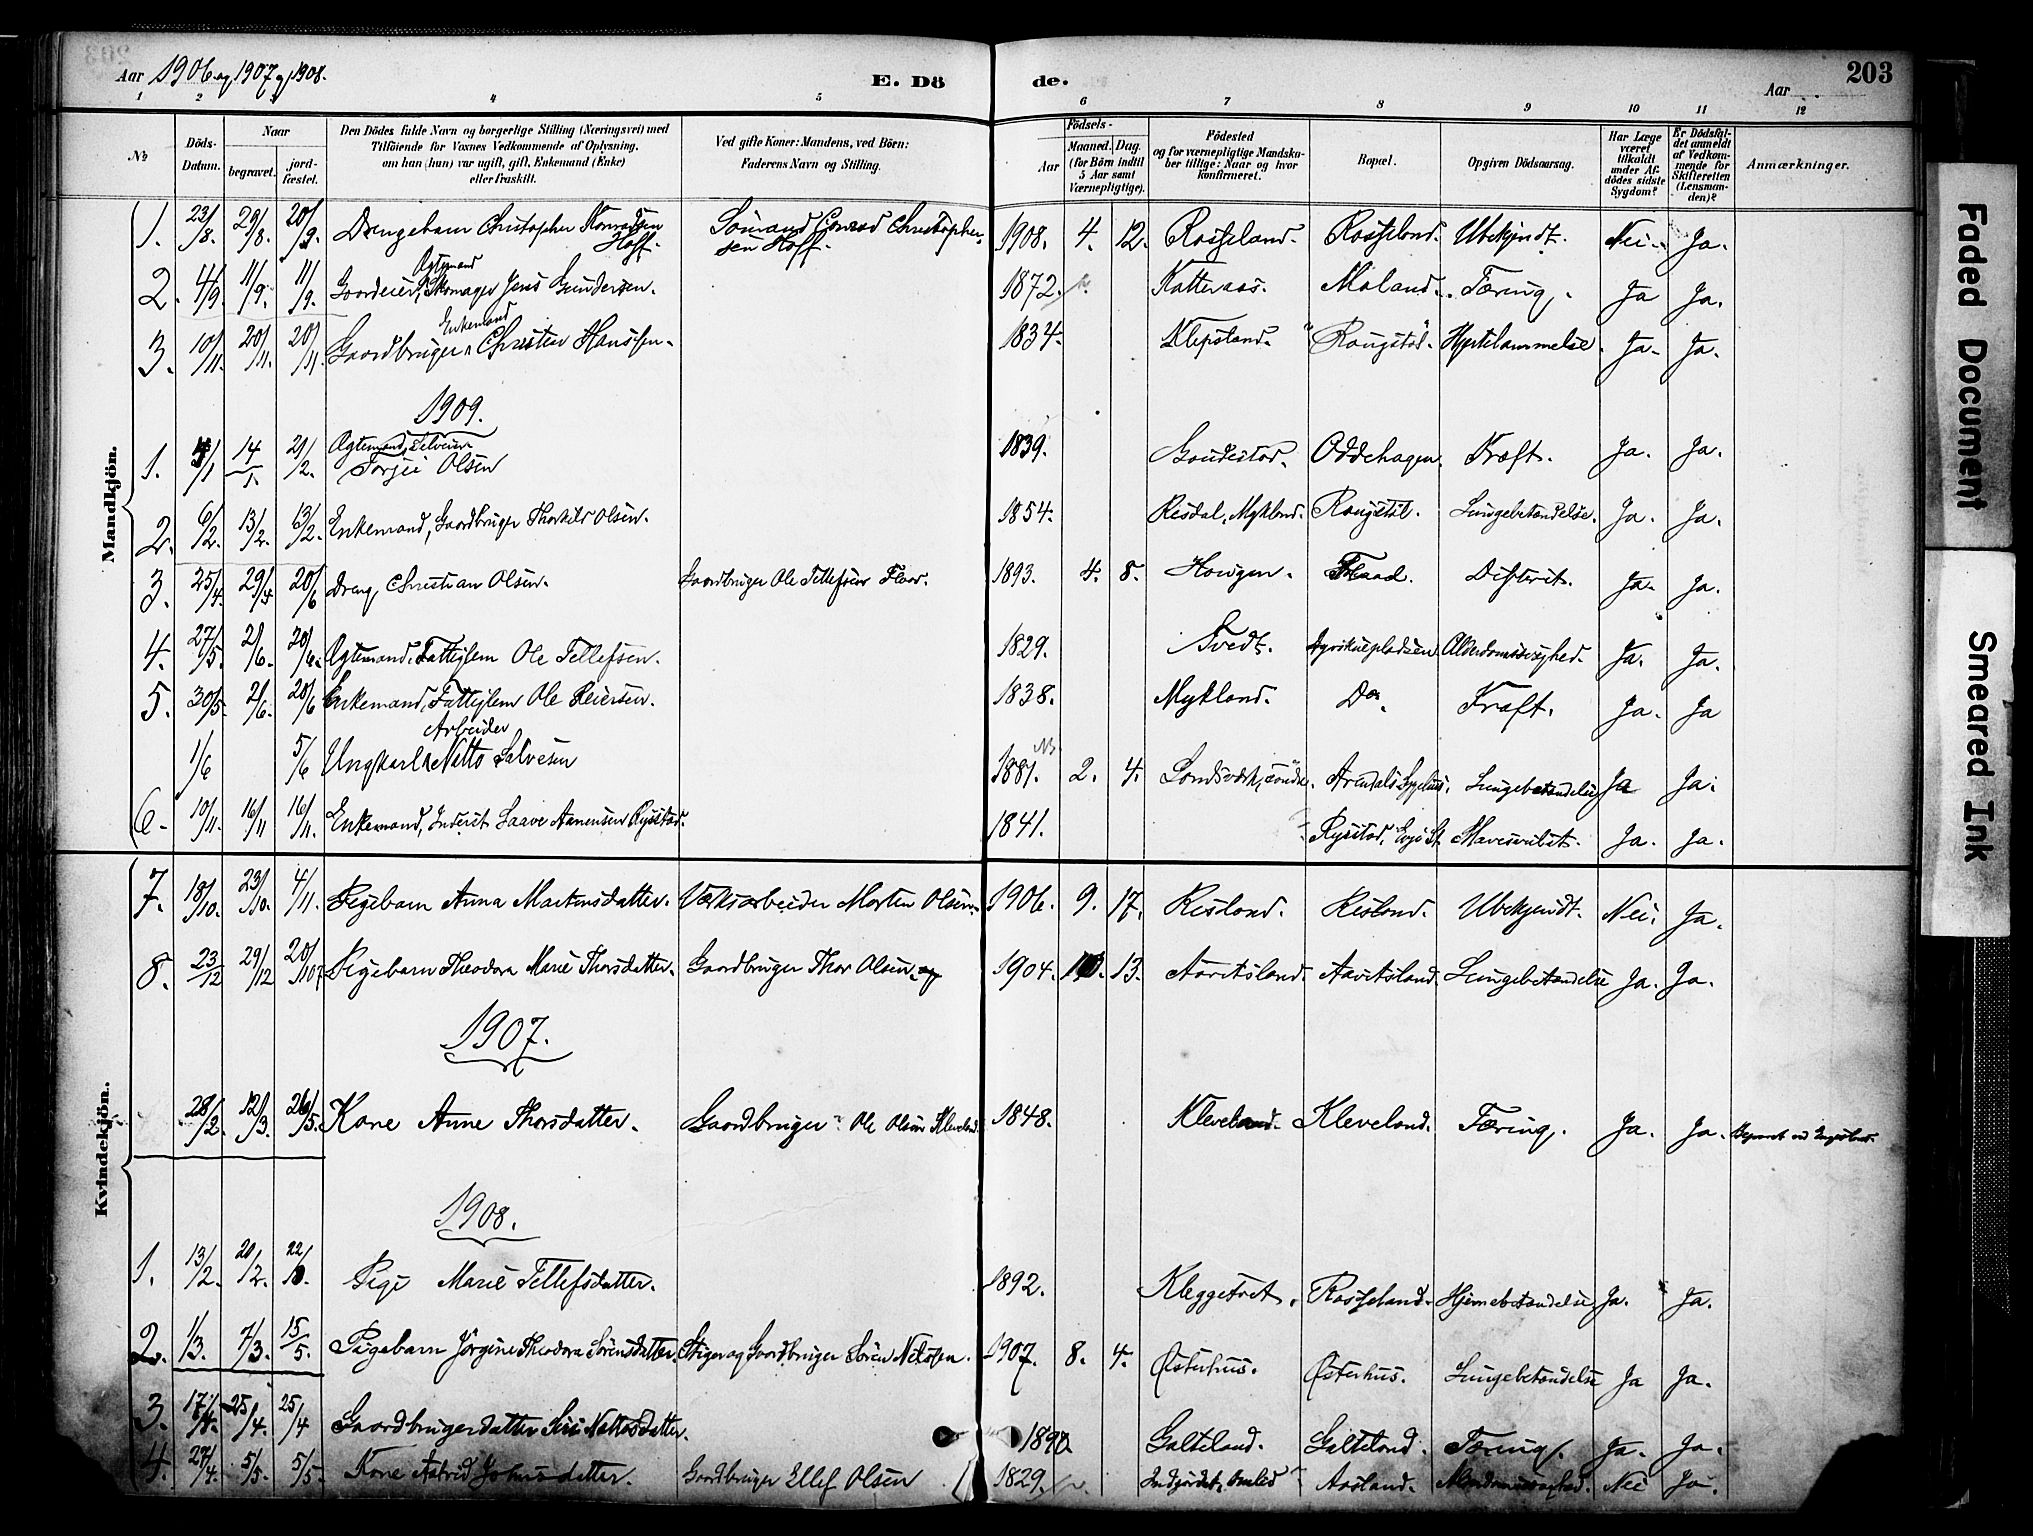 Aar 1906 og 1907 og 1908.
E. Dö
de.
Aar
203
1 2 3 4 5 6 7 8 9 10 11 12
No
Döds-Datum.
Naar
begravet.
jord-fæstet.
Den Dödes fulde Navn og borgerlige Stilling (Næringsvei) med
Tilföiende for Voxnes Vedkommende af Oplysning,
om han (hun) var ugift, gift, Enkemand (Enke)
eller fraskilt.
Ved gifte Koner: Mandens, ved Börn:
Faderens Navn og Stilling.
Födsels-
Aar
Maaned. Dag.
(for Börn indtil
5 Aar samt
Værnepligtige).
Födested
og for værnepligtige Mandska-
ber tillige: Naar og hvor
konfirmeret.
Bopæl.
Opgiven Dödsaarsag.
Har Læge
været
tilkaldt
under Af-
dödes sidste
Sygdom?
Er Dödsfal-
det anmeldt
af Vedkom-
mende for
Skifteretten
(Lensman-
den)?
Anmærkninger.
Mandkjön.
1. 23/8. 29/8. 20/9 Drengebarn Christopher Konradsen Hoff. Sömand Conrad Christophersen Hoff. 1908. 4. 12. Rosseland. Rosseland. Ubekjendt. Nei. Ja.
2. 4/9. 11/9. 11/9. Gaardeier, Ægtemand Skomager Jens Gundersen. 1872. Katteraas. Moland. Tæring. Ja Ja.
3. 10/11. 20/11. 20/11. Gaardbruger, Enkemand Christen Hanssen. 1834. Klepsland. Raugstöl. Hjertelammelse. Ja. Ja.
1909.
1. /1 14/1. 21/2. Ægtemand, Selveier Torjei Olsen 1839. Oddehagen. Kræft. Ja. Ja.
2. 6/2. 13/2. 13/2. Enkemand, Gaardbruger Thorkild Olsen. 1854. Risdal, Mykland. Raugstöl. Lungebetændelse. Ja. Ja.
3. 25/4. 29/4 20/6 Dreng Christian Olsen. Gaardbruger Ole Tellefsen Flaa. 1893. 4. 8. Hougen. Difterit. Ja. Ja.
4. 27/5. 2/6. 20/6. Ægtemand. Fattiglem Ole Tellefsen. 1829. Tvedt. Alderdomssvaghed. Ja. Ja.
5. 30/5. 2/6. 20/6 Enkemand, Fattiglem Ole Reiersen. 1838. Mykland. Do. Kræft. Ja. Ja
1/6 5/6 Ungkarl Arbeider Natto Salvesen 1881. 2. 4. Arendals Sygehus. Lungebetændelse Ja Ja.
6. 10/11. 16/11 16/11. Enkemand, Inderst Saave Aanensen Rysstad. 1841. Rysstad, Evje St. Ja. Ja.
Kvindekjön.
7. 18/10. 23/10. 4/11. Pigebarn Anna Martinsdatter. Værksarbeider Morten Olsen. 1906. 9. 17. Risland. Risland. Ubekjendt. Nei. Ja.
8. 23/12 29/12 20/1 07. Pigebarn Theodora Marie Thorsdatter. Gaardbruger Thor Olsen. 1904. 10. 13. Aavitsland. Aavitsland. Lungebetændelse Ja. Ja.
1907.
28/2. 12/3. 26/5. Kone Anne Thorsdatter. Gaardbruger Ole Olsen Kleveland. 1848. Kleveland. Kleveland. Tæring. Ja. Ja.
1908.
1. 13/2. 20/2. 22/ Pige Marie Tellefsdatter. 1892. Kleggetvet. Rosseland. Hjernebetændelse Ja. Ja.
2. 1/3. 7/3. 15/5. Pigebarn Jörgine Theodora Sörensdatter. Stiger og Gaardbruger Sören Nilssen. 1907. 8. 4. Østerhus. Østerhus. Lungebetændelse Ja Ja.
3. 17/4. 25/4. 25/4 Gaardbrugerdatter Siri Nattosdatter. 1890 Galteland. Galteland. Tæring. Ja. Ja.
4. 27/4. 5/5. 5/5. Kone Astrid Johnsdatter. Gaardbruger Ellef Olsen 1829. Aasland. Alderdomssvaghed. Nei Ja.
Faded Document
Smeared Ink